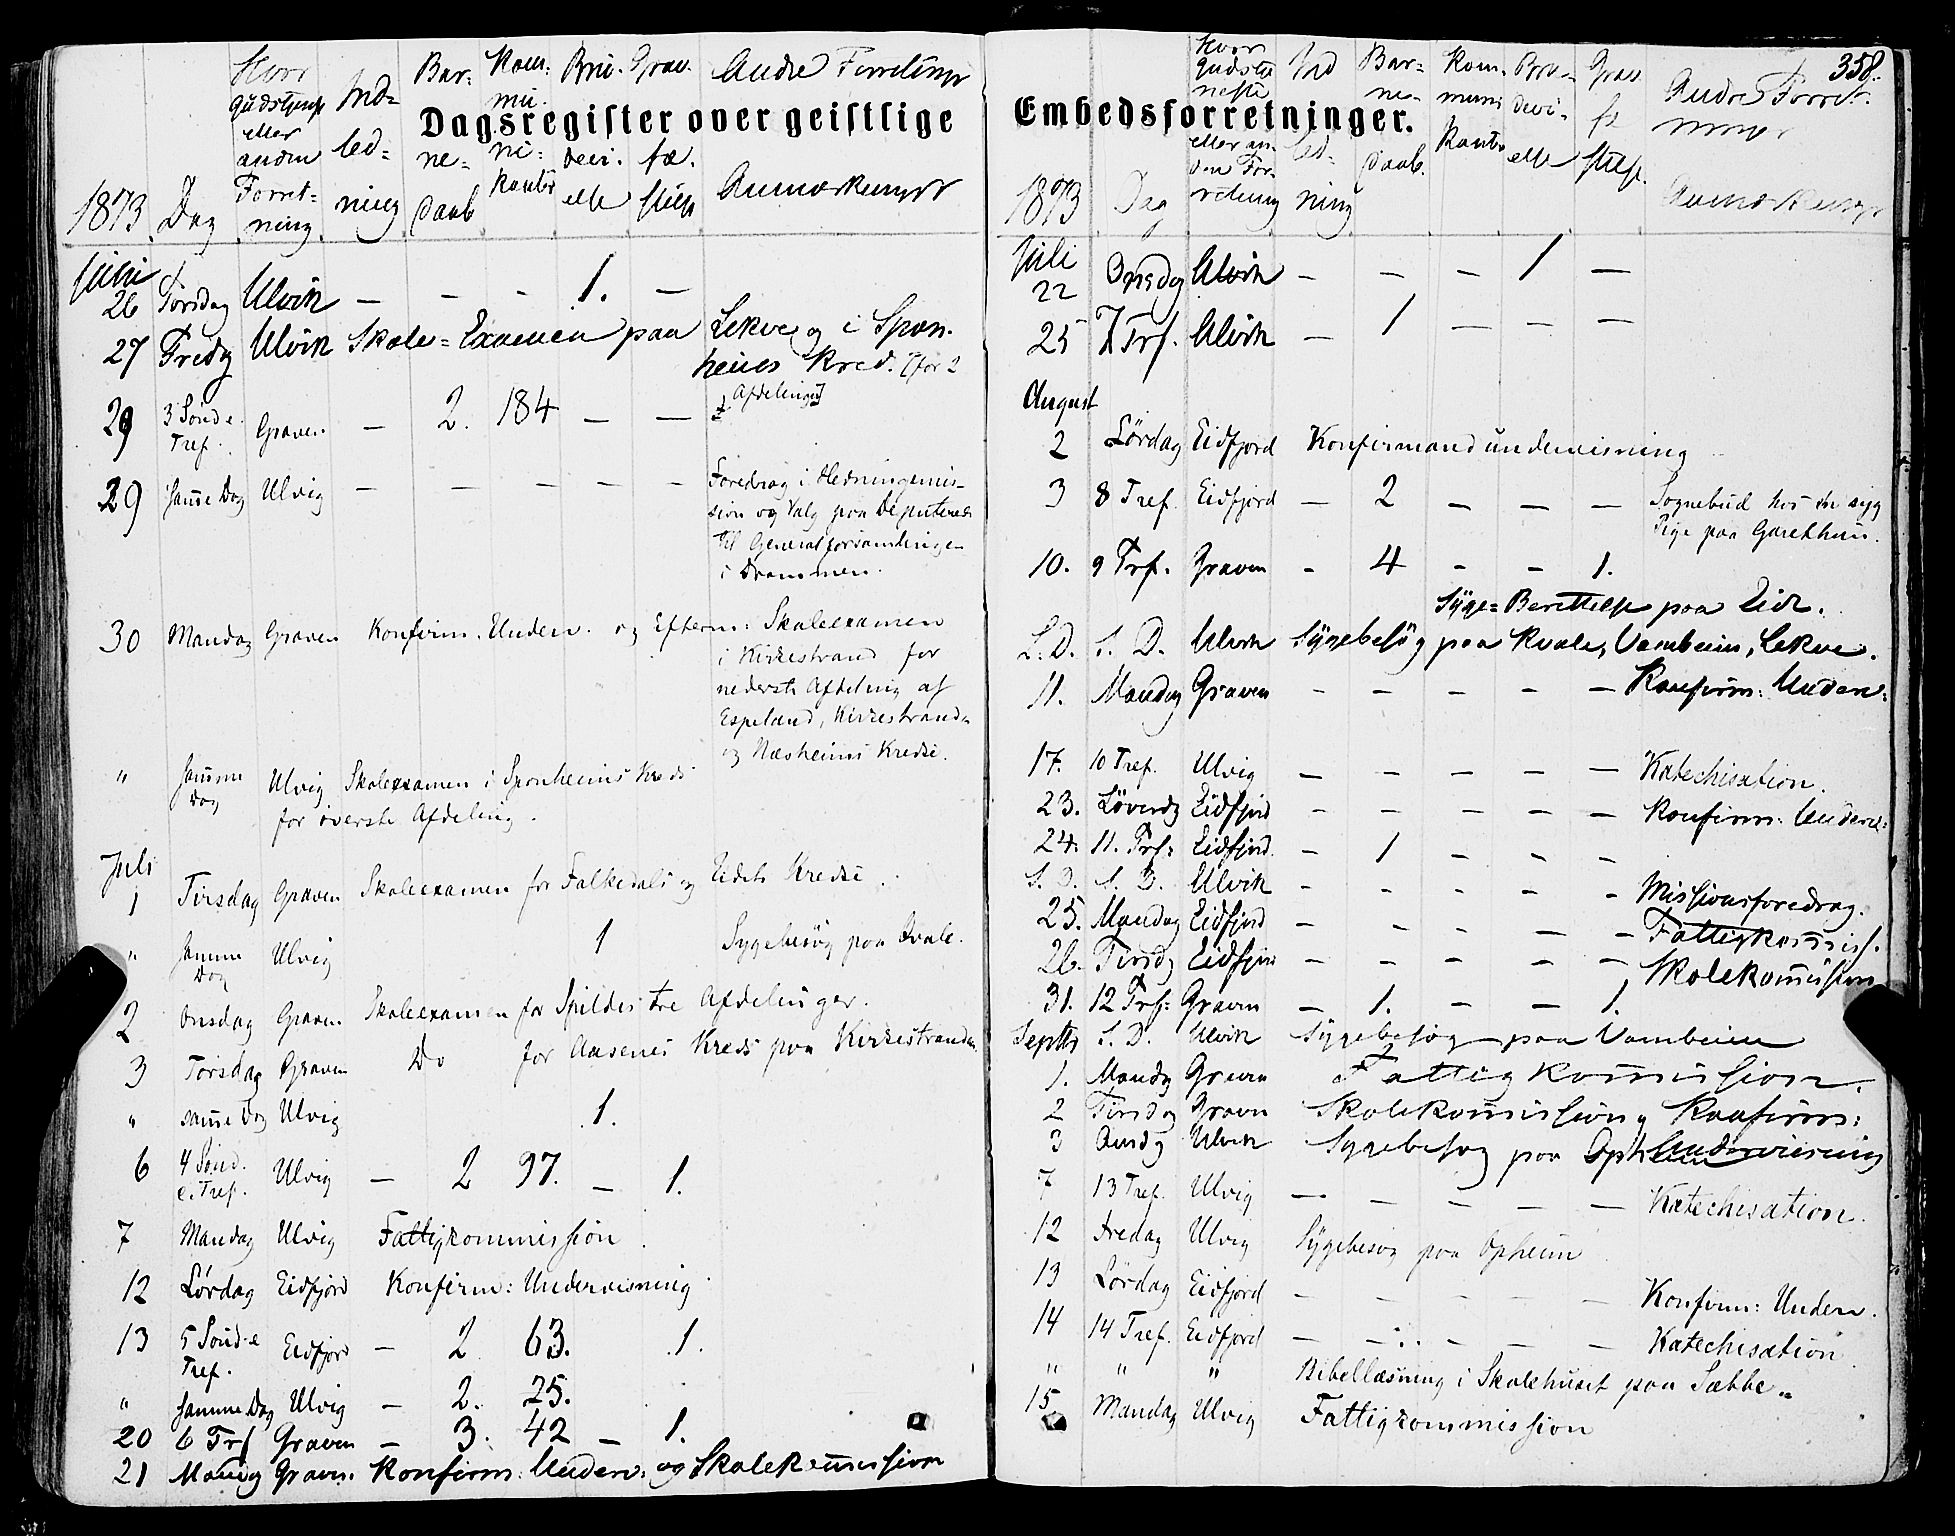 Dagsregister over geistlige
1873. Dag Hvor Gudstjeneste eller anden Forretning. Indledning Barnedaab Kommunikanter Brudevielse Grav fæ stelse Andre Forretninger Anmærkninger
Juni
26 Torsdag Ulvik — — — 1. —
27 Fredag Ulvik Skole-Examen paa Lekve og i Spon-
heims Kred. (for 2
Afdelinger)
29 3 Sønd e. Tref. Graven — 2. 184 — —
29 samme Dag Ulvig — — — — — Foredrag i Hedningemis-
sion og Valg paa Deputerede
til Generalforsamlingen
i Drammen.
30 Mandag Graven Konfirm. Underv. og Efterm: Skoleexamen
i Kirkestrand for
nederste Afdeling af
Espeland, Kirkestrand
og Næsheims Kredse.
" Samme Dag Ulvig Skoleexamen i Sponheims Kreds
for øverste Afdeling.
Juli
1 Tirsdag Graven Skoleexamen for Falkedals og Eidets Kredse.
" Samme Dag Ulvig 1 Sygebesøg paa Qvale.
2 Onsdag Graven Skoleexamen for Spildes tre Afdelinger.
3 Torsdag Graven Do for Aasenes Kreds paa Kirkestranden.
" samme Dag Ulvig 1.
6 4 Sønd. e. Tref. Ulvig — 2 97. — 1.
7 Mandag Ulvig Fattigkommission.
12 Lørdag Eidfjord Konfirm: Undervisning.
13 5 Sønd. e Tref. Eidfjord — 2 63. 1.
" samme Dag Ulvig — 2. 25.
20 6 Trf Graven — 3. 42 — 1.
21 Mandag Graven. Konfirm: Underv: og Skolekommission
358.
Embedsforretninger.
1873 Dag Hvor Gudstjeneste eller anden Forretning Indledning Barnedaab. Kommunikanter Brudevielse Græs fæstelse. Andre Forretninger Anmærkninger
Juli
22 Onsdag Ulvik — — — 1 —
25 7 Trf. Ulvik — 1 — — —
August
2 Lørdag Eidfjord Konfirmandundervisning
3 8 Tref. Eidfjord — 2 — — — Sognebud hos en syg
Pige paa Garethun.
10. 9 Trf. Graven - 4 - - 1.
Syge-Berettelse paa Eide.
S. D. S. D. Ulvik Sygebesøg paa Kvale, Vambeim, Lekve.
11. Mandag Graven — — — — — Konfirm: Underv:
17. 10 Tref. Ulvig — — — — — Katechisation.
23. Løverdag Eidfjord — — — — — Konfirm: Underv:
24. 11. Trf: Eidfjord. — 1 — — —
S. D. S. D. Ulvik - - - - - Missionsforedrag.
25. Mandag Eidfjord — — — — — Fattigkommiss.
26. Tirsdag Eidfjord — — — — — Skolekommission
31. 12 Trf: Graven — 1. — — 1.
S. D. Ulvik Sygebesøg paa Vambeim
Septbr
1. Mandag Graven Fattigkommission.
2 Tirsdag Graven Skolekommission og Konfirm:
Undervisning
3 Onsdag Ulvik Sygebesøg paa Opheim
7 13 Tref. Ulvig — — — — — Katechisation.
12 Fredag Ulvig Sygebesøg paa Opheim
13 Lørdag Eidfjord — — — — — Konfirm: Underv.
14 14 Tref. Eidfjord — — — — — Katechisation.
" " " Bibellæsning i Skolehuset paa Sæbbe.
15. Mandag Ulvig Fattigkommission